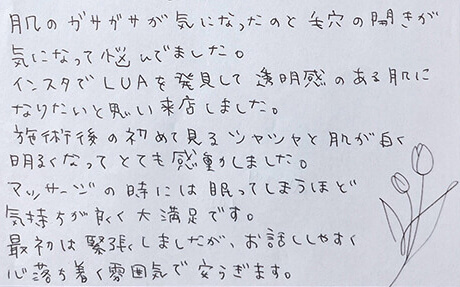 肌のガサガサが気になったのと毛穴の開きが
気になって悩んでました。
インスタでLUAを発見して透明感のある肌に
なりたいと思い来店しました。
施術後の初めて見るツヤツヤと肌が白く
明るくなってとても感動しました。
マッサージの時には眠ってしまうほど
気持ちが良く大満足です。
最初は緊張しましたが、お話ししやすく
心落ち着く雰囲気で安らぎます。